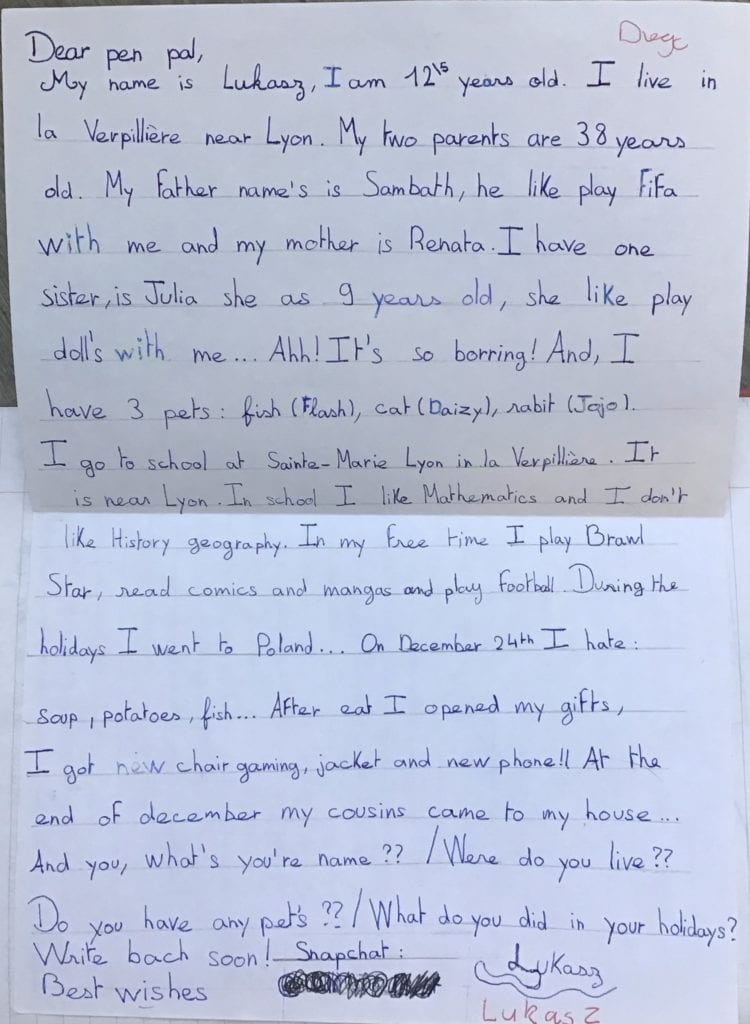 Diego
Dear pen pal,
My name is Lukasz, I am 12\5 years old. I live in
la Verpillière near Lyon. My two parents are 38 years
old. My father name's is Sambath, he like play FiFa
with me and my mother is Renata. I have one
sister, is Julia she as 9 years old, she like play
doll's with me... Ahh! It's so borring! And, I
have 3 pets: fish (Flash), cat (Daizy), rabit (Jojo).
I go to school at Sainte-Marie Lyon in la Verpillière. It
is near Lyon. In school I like Mathematics and I don't
like History geography. In my free time I play Brawl
Star, read comics and mangas and play football. During the
holidays I went to Poland... On December 24th I hate:
soup, potatoes, fish... After eat I opened my gifts,
I got new chair gaming, jacket and new phone!! At the
end of december my cousins came to my house...
And you, what's you're name?? / Were do you live??
Do you have any pet's?? / What do you did in your holidays?
Write bach soon! Snapchat:
Best wishes
Lukasz
Lukasz